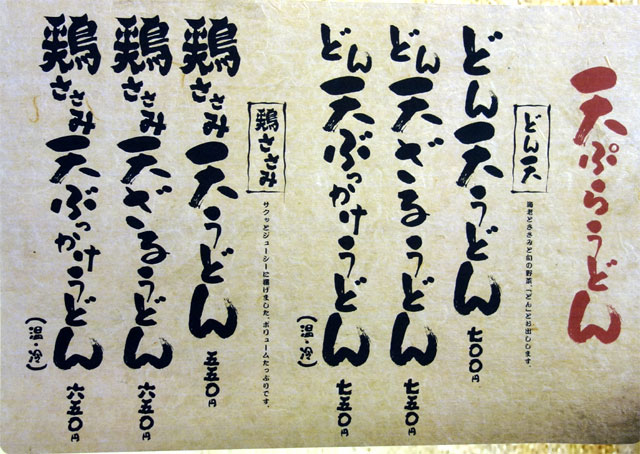 天ぷらうどん
どん天
海老とささみと旬の野菜、「どん」とお出しします。
どん天うどん 七〇〇円
どん天ざるうどん 七五〇円
どん天ぶっかけうどん (温・冷) 七五〇円
鶏ささみ
サクッとジューシーに揚げました。ボリュームたっぷりです。
鶏ささみ天うどん 五五〇円
鶏ささみ天ざるうどん 六五〇円
鶏ささみ天ぶっかけうどん (温・冷) 六五〇円